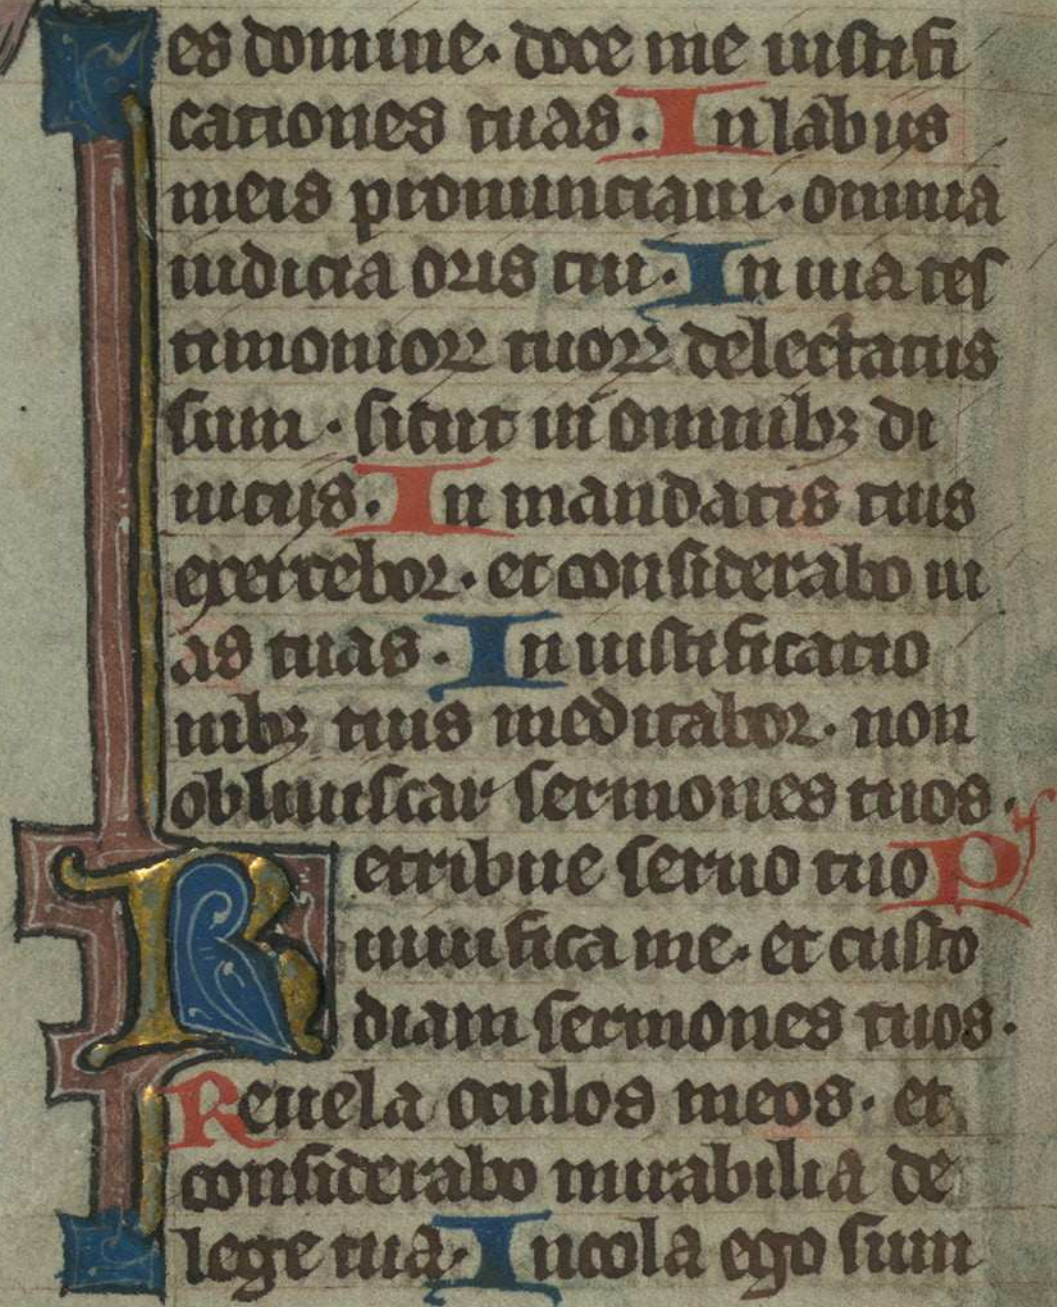 es domine. doce me iustifi
cationes tuas. In labiis
meis pronunciaui. omnia
iudicia oris tui. In uia tes
timonioꝝ tuoꝝ delectatus
sum. sicut in omnibꝫ di
uiciis. In mandatis tuis
exercebor. et considerabo ui
as tuas. In iustificatio
nibꝫ tuis meditabor. non
obliuiscar sermones tuos.
Retribue seruo tuo ps
uiuifica me. et custo
diam sermones tuos.
Reuela oculos meos. et
considerabo mirabilia de
lege tua. Incola ego sum